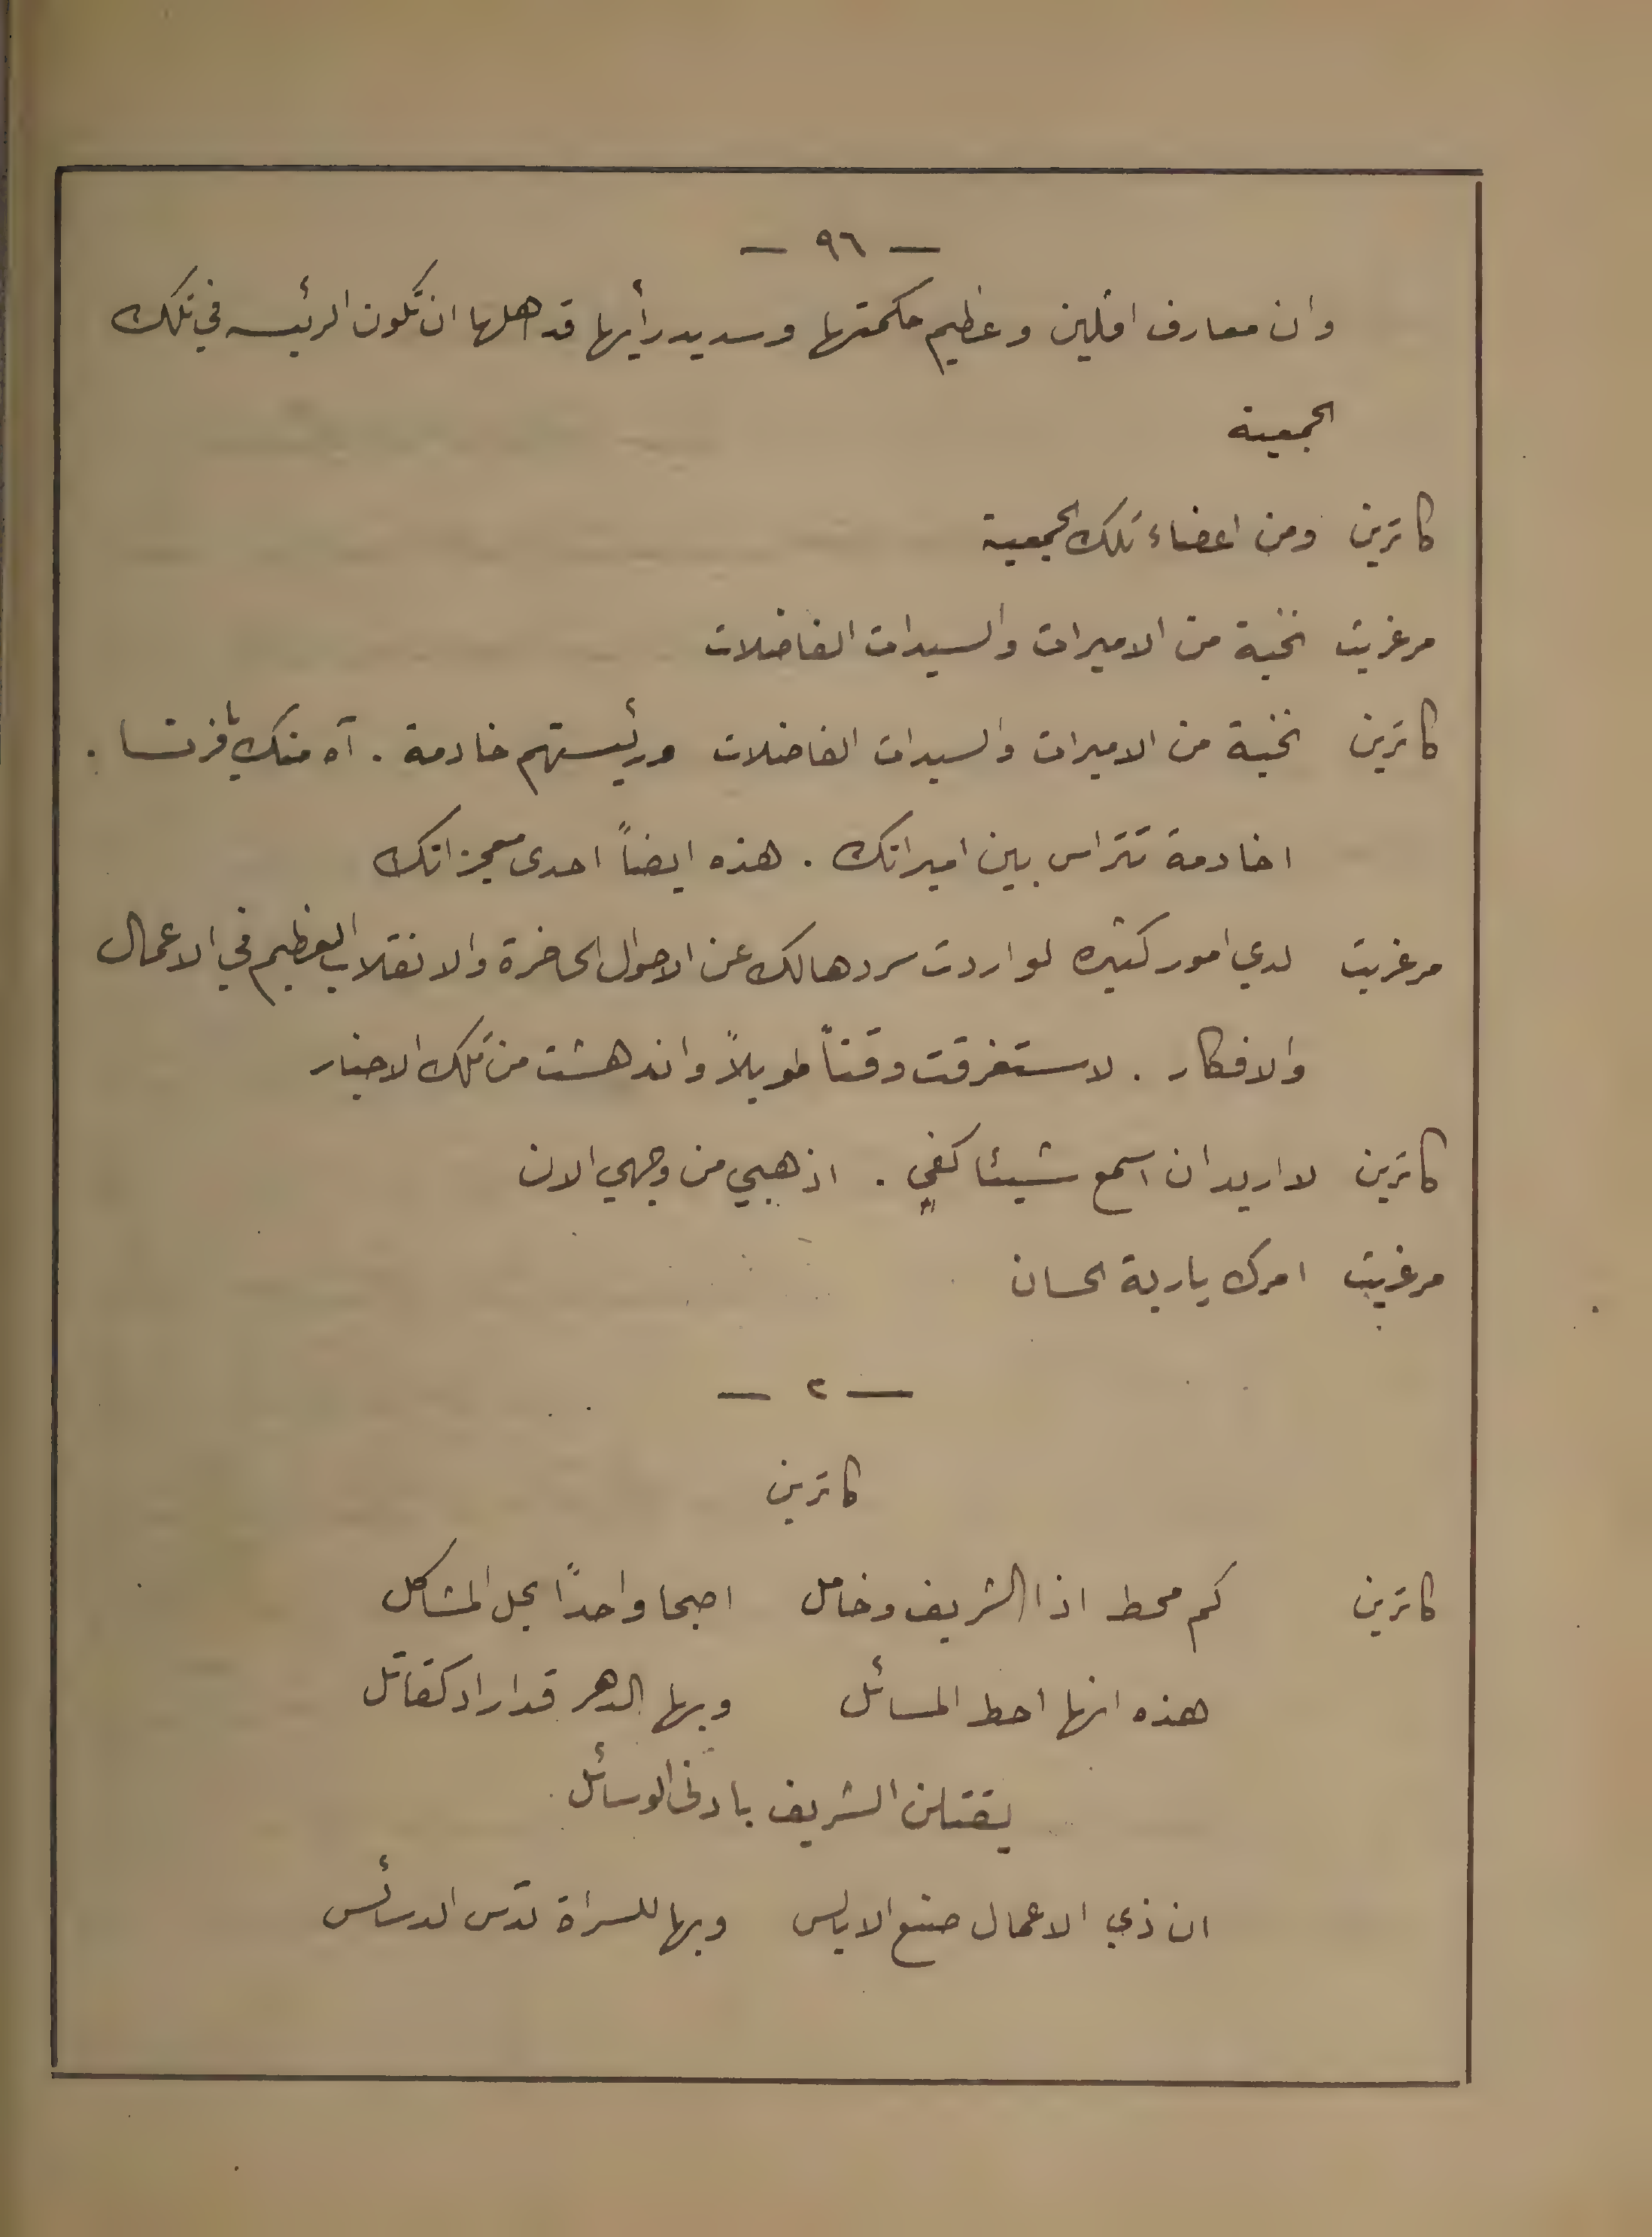 — ٩٦ —
وان معارف افلين وعظيم حكمتها وسديد رأيها قد اهلها ان تكون الرئيسه في تلك
الجمعية
كاترين ومن اعضاء تلك الجمعية
مرغريت نخبة من الاميرات والسيدات الفاضلات
كاترين نخبة من الاميرات والسيدات الفاضلات ورئيستهم خادمة . آه منك يا فرنسا .
اخادمة تتراس بين اميراتك . هذه ايضاً احدى معجزاتك
مرغريت لدي امور كثيره لو اردت سردها لك عن الاحوال الحاضرة والانقلاب العظيم في الاعمال
والافكار . لاستغرقت وقتاً طويلاً واندهشت من تلك الاخبار
كاترين لا اريد ان اسمع شيئا كفي . اذهبي من وجهي الان
مرغريت امرك يا ربة الحسان
— ٢ —
كاترين
كاترين كم محط اذا الشريف وخامل اصبحا واحدًا بحل المشاكل
هذه انها احط المسائل وبها الدهر قد اراد كقاتل
يقتلن الشريف بادنى الوسائل
ان ذي الاعمال صنع الابالس وبها للسراة تدس الدسائس